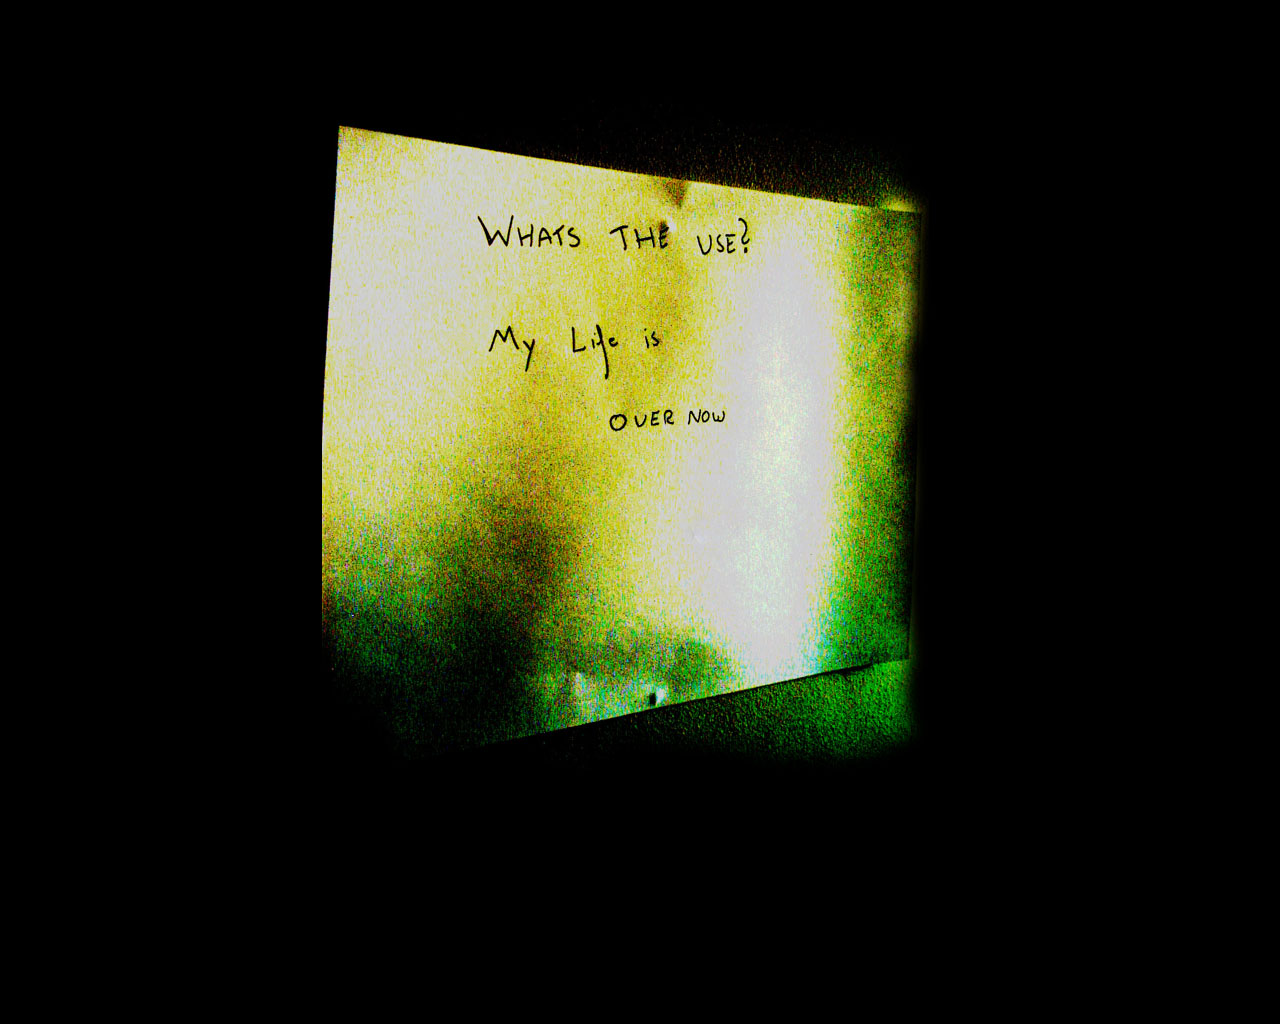 WHATS THE USE?
My Life is
OVER NOW